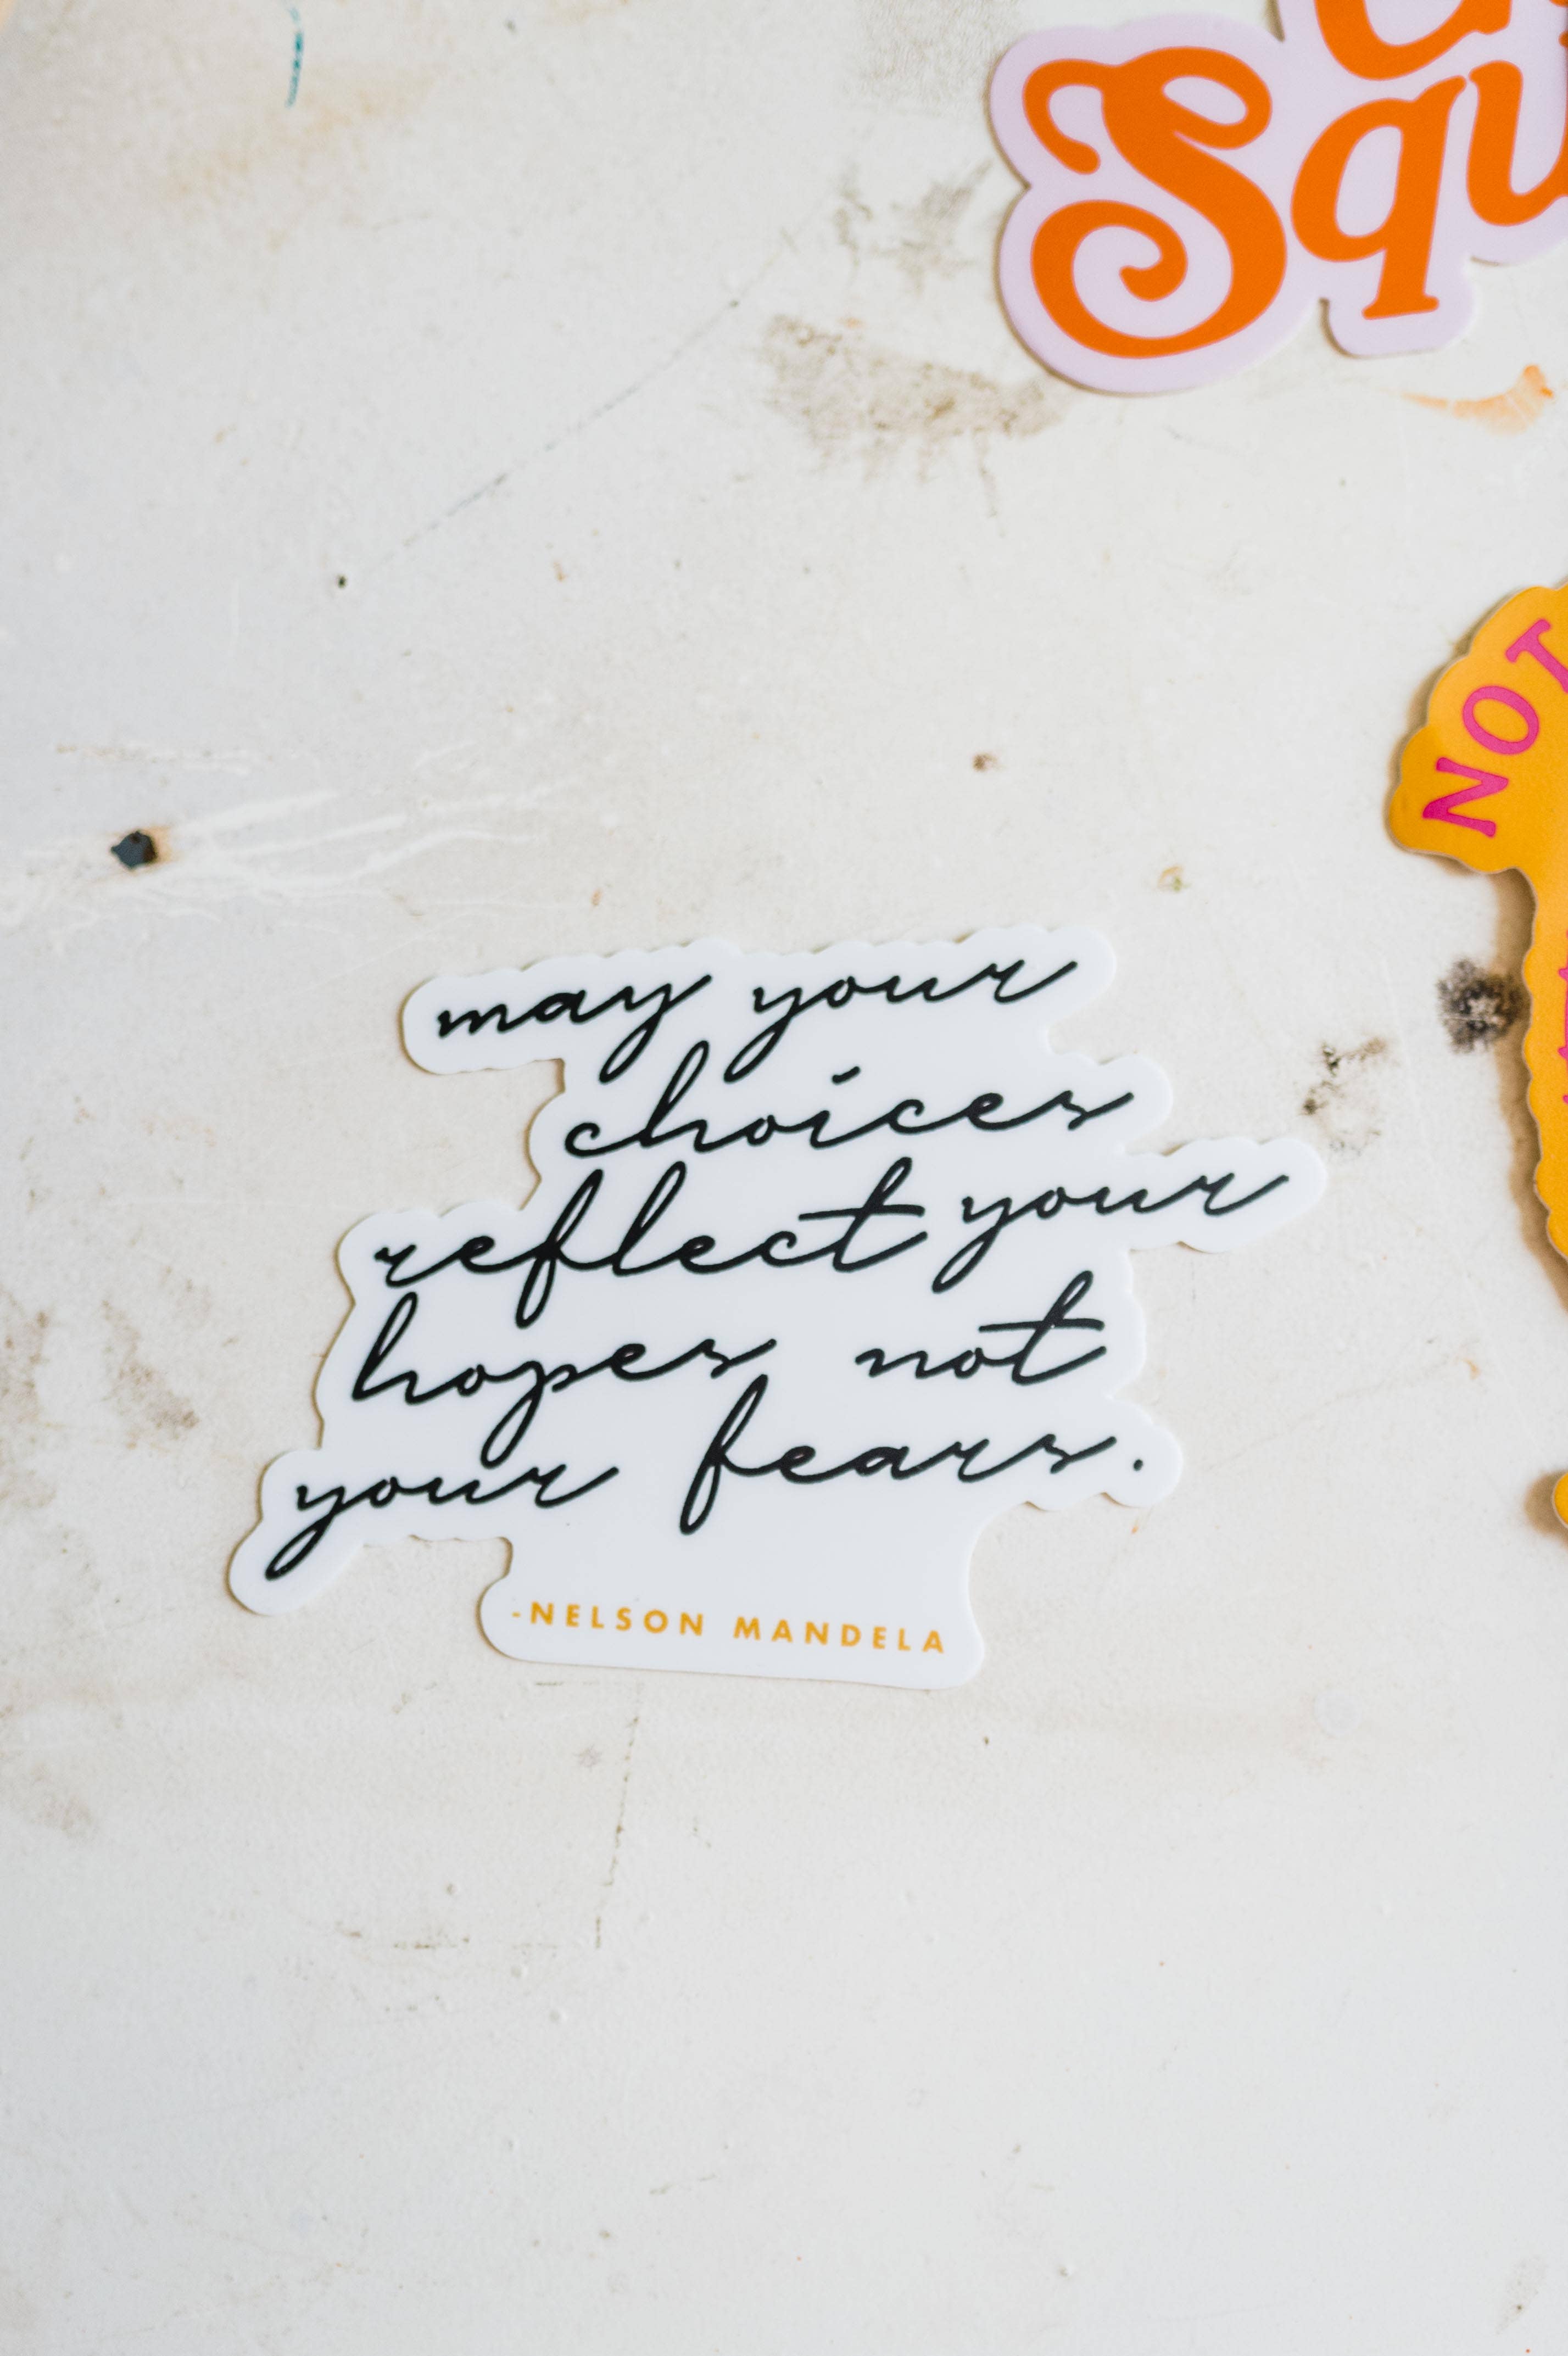 Squ
NOT
may your
choices
reflect your
hopes not
your fears.
-NELSON MANDELA